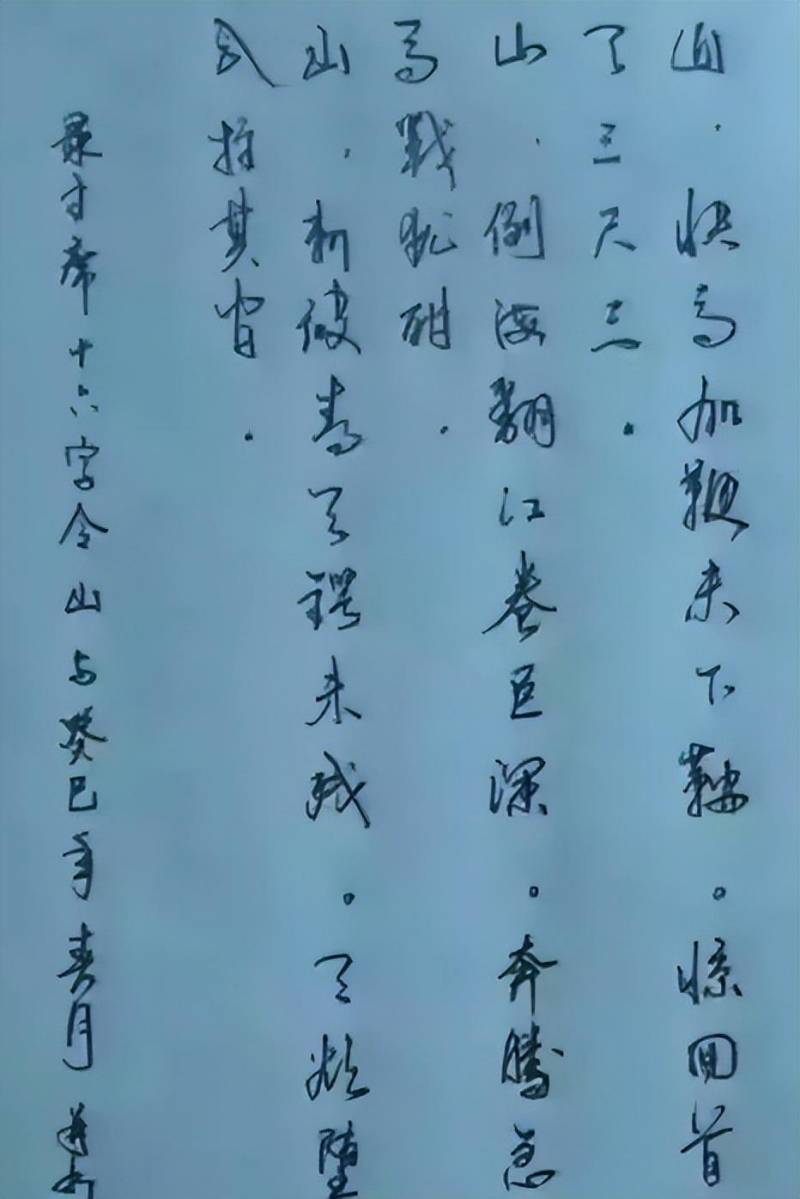 山，快马加鞭未下鞍。惊回首
天三尺三。
山，倒海翻江卷巨澜。奔腾急
马战犹酣。
山，刺破青天锷未残。天欲堕
以拄其间。
录主席十六字令山与癸巳年春月